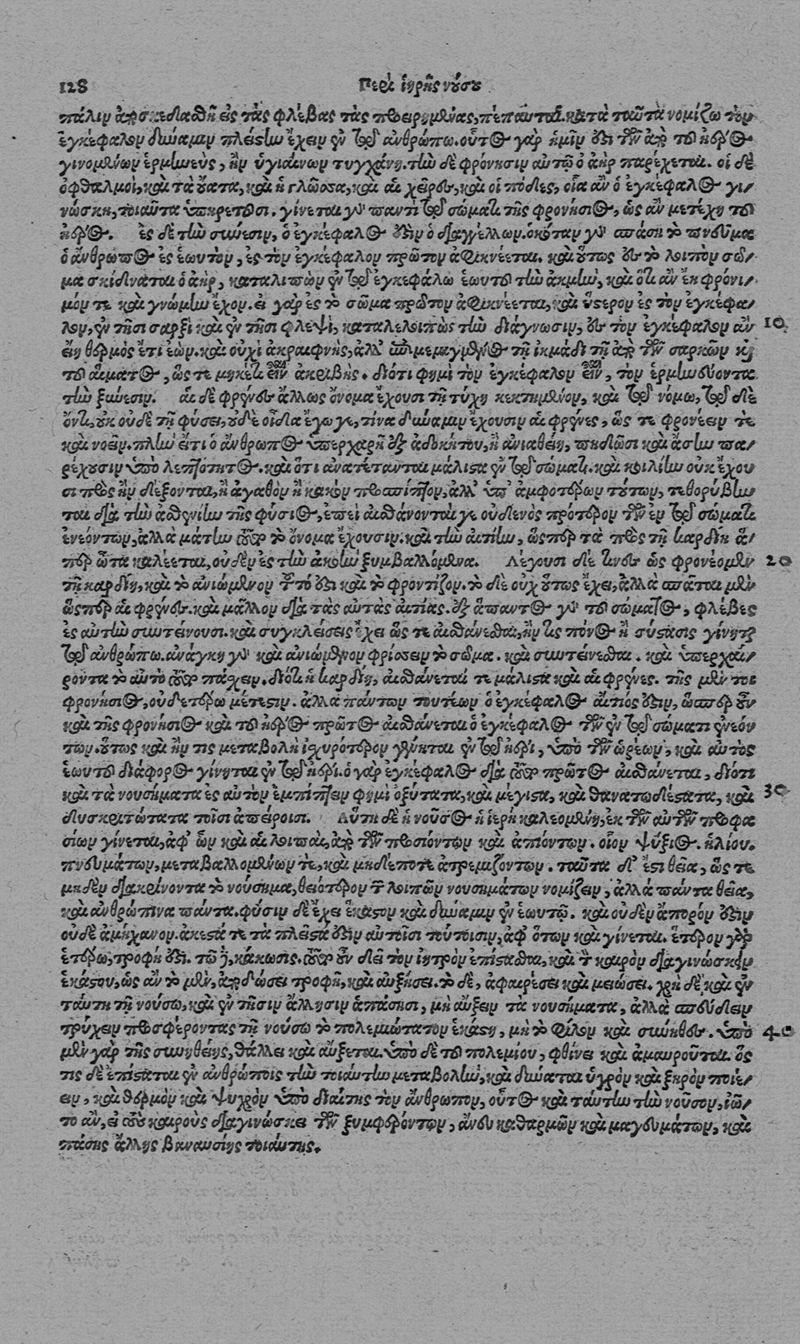 128 Περὶ ἱερῆς νούσου
πάλιν ἀποσκεδασθῇ ἐς τὰς φλέβας τὰς προειρημένας, πέπαυται. κατὰ ταῦτα νομίζω τὸν
ἐγκέφαλον δύναμιν πλείστην ἔχειν ἐν τῷ ἀνθρώπῳ. οὗτος γὰρ ἡμῖν ἐστι τῶν ἀπὸ τοῦ ἠέρος
γινομένων ἑρμηνεὺς, ἢν ὑγιαίνων τυγχάνῃ. τὴν δὲ φρόνησιν αὐτῷ ὁ ἀὴρ παρέχεται. οἱ δὲ
ὀφθαλμοὶ, καὶ τὰ οὔατα, καὶ ἡ γλῶσσα, καὶ αἱ χεῖρες, καὶ οἱ πόδες, οἷα ἂν ὁ ἐγκέφαλος γι-
νώσκῃ, τοιαῦτα ὑπηρετοῦσι. γίνεται γὰρ παντὶ τῷ σώματι τῆς φρονήσιος, ὡς ἂν μετέχῃ τοῦ
ἠέρος. ἐς δὲ τὴν σύνεσιν, ὁ ἐγκέφαλος ἐστιν ὁ διαγγέλλων. ὁκόταν γὰρ σπάσῃ τὸ πνεῦμα
ὁ ἄνθρωπος ἐς ἑωυτὸν, ἐς τὸν ἐγκέφαλον πρῶτον ἀφικνέεται. καὶ οὕτως ἐς τὸ λοιπὸν σῶ-
μα σκίδναται ὁ ἀὴρ, καταλιπὼν ἐν τῷ ἐγκεφάλῳ ἑωυτοῦ τὴν ἀκμὴν, καὶ ὅτι ἂν ἔῃ φρόνι-
μόν τε καὶ γνώμην ἔχον. εἰ γὰρ ἐς τὸ σῶμα πρῶτον ἀφικνέεται, καὶ ὕστερον ἐς τὸν ἐγκέφα-
λον, ἐν τῇσι σαρξὶ καὶ ἐν τῇσι φλεψὶ, καταλελοιπὼς τὴν διάγνωσιν, ἐς τὸν ἐγκέφαλον ἂν 10
ἔῃ θερμὸς ἔτι ἐὼν. καὶ οὐχὶ ἀκραιφνὴς, ἀλλ' ἐπιμεμιγμένος τῇ ἰκμάδι τῇ ἀπὸ τῶν σαρκῶν καὶ
τοῦ αἵματος, ὥς τε μηκέτι εἶναι ἀκριβής. διότι φημὶ τὸν ἐγκέφαλον εἶναι, τὸν ἑρμηνεύοντα
τὴν ξύνεσιν. αἱ δὲ φρένες ἄλλως ὄνομα ἔχουσι τῇ τύχῃ κεκτημένον, καὶ τῷ νόμῳ, τῷ δὲ
ὄντι, οὐκ οὐδὲ τῇ φύσει, οὐδὲ οἶδα ἔγωγε, τίνα δύναμιν ἔχουσιν αἱ φρένες, ὥς τε φρονέειν τε
καὶ νοεῖν. πλὴν ἔτι ὁ ἄνθρωπος ὑπερχαρῇ ἐξ ἀδοκήτου, ἢ ἀνιαθείη, πηδῶσι καὶ ἄσην πα-
ρέχουσιν ὑπὸ λεπτότητος. καὶ ὅτι ἀνατέτανται μάλιστα ἐν τῷ σώματι. καὶ κοιλίην οὐκ ἔχου
σι πρὸς ἣν δέξονται, ἢ ἀγαθὸν ἢ κακὸν προσπῖπτον, ἀλλ' ὑπ' ἀμφοτέρων τούτων, τεθορύβην
ται διὰ τὴν ἀσθενίην τῆς φύσιος, ἐπεὶ αἰσθάνονταί γε οὐδενὸς πρότερον τῶν ἐν τῷ σώματι
ἐνεόντων, ἀλλὰ μάτην τοῦτο τὸ ὄνομα ἔχουσιν. καὶ τὴν αἰτίην, ὥσπερ τὰ πρὸς τῇ καρδίῃ ἅ-
περ ὦτα καλέεται, οὐδὲν ἐς τὴν ἀκοὴν ξυμβαλλόμενα. Λέγουσι δέ τινες ὡς φρονέομεν 20
τῇ καρδίῃ, καὶ τὸ ἀνιώμενον τοῦτό ἐστι καὶ τὸ φροντίζον. τὸ δὲ οὐχ οὕτως ἔχει, ἀλλὰ σπᾶται μὲν
ὥσπερ αἱ φρένες. καὶ μᾶλλον διὰ τὰς αὐτὰς αἰτίας. ἐξ ἅπαντος γὰρ τοῦ σώματος, φλέβες
ἐς αὐτὴν συντείνουσι. καὶ συγκλείσεις ἔχει ὥς τε αἰσθάνεσθαι, ἤν τις πόνος ἢ σύστασις γίνηται
τῷ ἀνθρώπῳ. ἀνάγκη γὰρ καὶ ἀνιώμενον φρίσσειν τὸ σῶμα. καὶ συντείνεσθαι. καὶ ὑπερχαί-
ροντα τὸ αὐτὸ τοῦτο πάσχειν. διότι ἡ καρδίη, αἰσθάνεταί τε μάλιστα καὶ αἱ φρένες. τῆς μέν τοι
φρονήσιος, οὐδετέρῳ μέτεστιν. ἀλλὰ πάντων τουτέων ὁ ἐγκέφαλος αἴτιός ἐστιν, ὥσπερ οὖν
καὶ τῆς φρονήσιος καὶ τοῦ ἠέρος πρῶτος αἰσθάνεται ὁ ἐγκέφαλος τῶν ἐν τῷ σώματι ἐνεόν
των. οὕτως καὶ ἤν τις μεταβολὴ ἰσχυρότερον γένηται ἐν τῷ ἠέρι, ὑπὸ τῶν ὡρέων, καὶ αὐτὸς
ἑωυτοῦ διάφορος γίνηται ἐν τῷ ἠέρι. ὁ γὰρ ἐγκέφαλος διὰ τοῦτο πρῶτος αἰσθάνεται, διότι
καὶ τὰ νουσήματα ἐς αὐτὸν ἐμπίπτειν φημὶ ὀξύτατα, καὶ μέγιστα, καὶ θανατωδέστατα, καὶ 30
δυσκριτώτατα τοῖσι ἀπείροισι. Αὕτη δὲ ἡ νοῦσος ἡ ἱερὴ καλεομένη, ἐκ τῶν αὐτῶν προφα
σίων γίνεται, ἀφ' ὧν καὶ αἱ λοιπαὶ, ἀπὸ τῶν προσιόντων καὶ ἀπιόντων. οἷον ψύξιος. ἡλίου.
πνευμάτων, μεταβαλλομένων τε, καὶ μηδέποτε ἀτρεμιζόντων. ταῦτα δ' ἐστὶ θεῖα, ὥς τε
μηδὲν διακρίνοντα τὸ νούσημα, θειότερον τῶν λοιπῶν νουσημάτων νομίζειν, ἀλλὰ πάντα θεῖα,
καὶ ἀνθρώπινα πάντα. φύσιν δὲ ἔχει ἕκαστον καὶ δύναμιν ἐν ἑωυτῷ. καὶ οὐδὲν ἄπορόν ἐστιν
οὐδὲ ἀμήχανον. ἀκεστά τε τὰ πλεῖστά ἐστιν αὐτοῖσι τούτοισιν, ἀφ' ὅτων καὶ γίνεται. ἕτερον γὰρ
ἑτέρῳ, τροφή ἐστι. τῷ δὲ, κάκωσις. τοῦτο οὖν δεῖ τὸν ἰητρὸν ἐπίστασθαι, καὶ τὸν καιρὸν διαγινώσκειν
ἑκάστου, ὡς ἂν τὸ μὲν, ἀποδώσει τροφὴν, καὶ αὐξήσει. τὸ δὲ, ἀφαιρέσει καὶ μειώσει. χρὴ δὲ καὶ ἐν
ταύτῃ τῇ νούσῳ, καὶ ἐν τῇσιν ἄλλῃσιν ἁπάσῃσι, μὴ αὔξειν τὰ νουσήματα, ἀλλὰ σπεύδειν
τρύχειν προσφέροντας τῇ νούσῳ τὸ πολεμιώτατον ἑκάστῃ, μὴ τὸ φίλον καὶ σύνηθες. ὑπὸ 40
μὲν γὰρ τῆς συνηθείης, θάλλει καὶ αὔξεται. ὑπὸ δὲ τοῦ πολεμίου, φθίνει καὶ ἀμαυροῦται. ὅς
τις δὲ ἐπίσταται ἐν ἀνθρώποις τὴν τοιαύτην μεταβολὴν, καὶ δύναται ὑγρὸν καὶ ξηρὸν ποιέ-
ειν, καὶ θερμὸν καὶ ψυχρὸν ὑπὸ διαίτης τὸν ἄνθρωπον, οὗτος καὶ ταύτην τὴν νοῦσον, ἰῷ-
το ἂν, εἰ τοὺς καιροὺς διαγινώσκει τῶν ξυμφερόντων, ἄνευ καθαρμῶν καὶ μαγευμάτων, καὶ
πάσης ἄλλης βαναυσίης τοιαύτης.